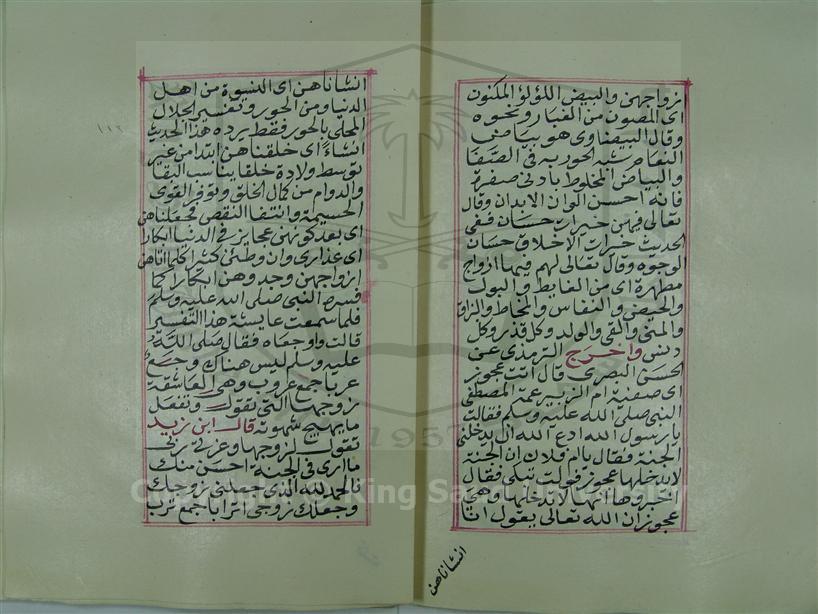 زواجهن والبيض اللؤلؤ المكنون
اى المصون من الغبار ونحوه
وقال البيضاوى هو بياض بيض
النعام شبه الحور به فى الصفا
والبياض المخلوط بادنى صفرة
فانه احسن الوان الابدان وقال
تعالى فيهن خيرات حسان ففى
الحديث خيرات الاخلاق حسان
الوجوه وقال تعالى لهم فيها ازواج
مطهرة اى من الغايط والبول
والحيض والنفاس والمخاط والبزاق
والمنى والقى والولد وكل قذر وكل
دنس واخرج الترمذى عن
الحسن البصرى قال اتت عجوز
اى صفية ام الزبير عمة المصطفى
النبى صلى الله عليه وسلم فقالت
يا رسول الله ادع الله ان يدخلنى
الجنة فقال يا ام فلان ان الجنة
لا يدخلها عجوز فولت تبكى فقال
اخبروها انها لا تدخلها وهى
عجوز ان الله تعالى يقول انا
انشاناهن
انشاناهن اى النسوة من اهل
الدنيا ومن الحور وتفسير الجلال
المحلى بالحور فقط يرده هذا الحديث
انشاءً اى خلقناهن ابتدا من غير
توسط ولادة خلقا يناسب البقا
والدوام من كمال الخلق وتوفر القوى
الجسيمة وانتفا النقص فجعلناهن
اى بعد كونهن عجايز فى الدنيا ابكارا
اى عذارى وان وطئن كثيرا كلما اتاهن
ازواجهن وجدوهن ابكارا كما
فسره النبى صلى الله عليه وسلم
فلما سمعت عايشة هذا التفسير
قالت واوجعاه فقال صلى الله
عليه وسلم ليس هناك وجع
عربا جمع عروب وهى العاشقة
لزوجها التى تقول وتفعل
ما يهيج شهوته قال ابن زيد
تقول لزوجها وعزة ربى
ما ارى فى الجنة احسن منك
فالحمد لله الذى جعلنى زوجك
وجعلك زوجى اترابا جمع ترب
1957
Copyright © King Saud University